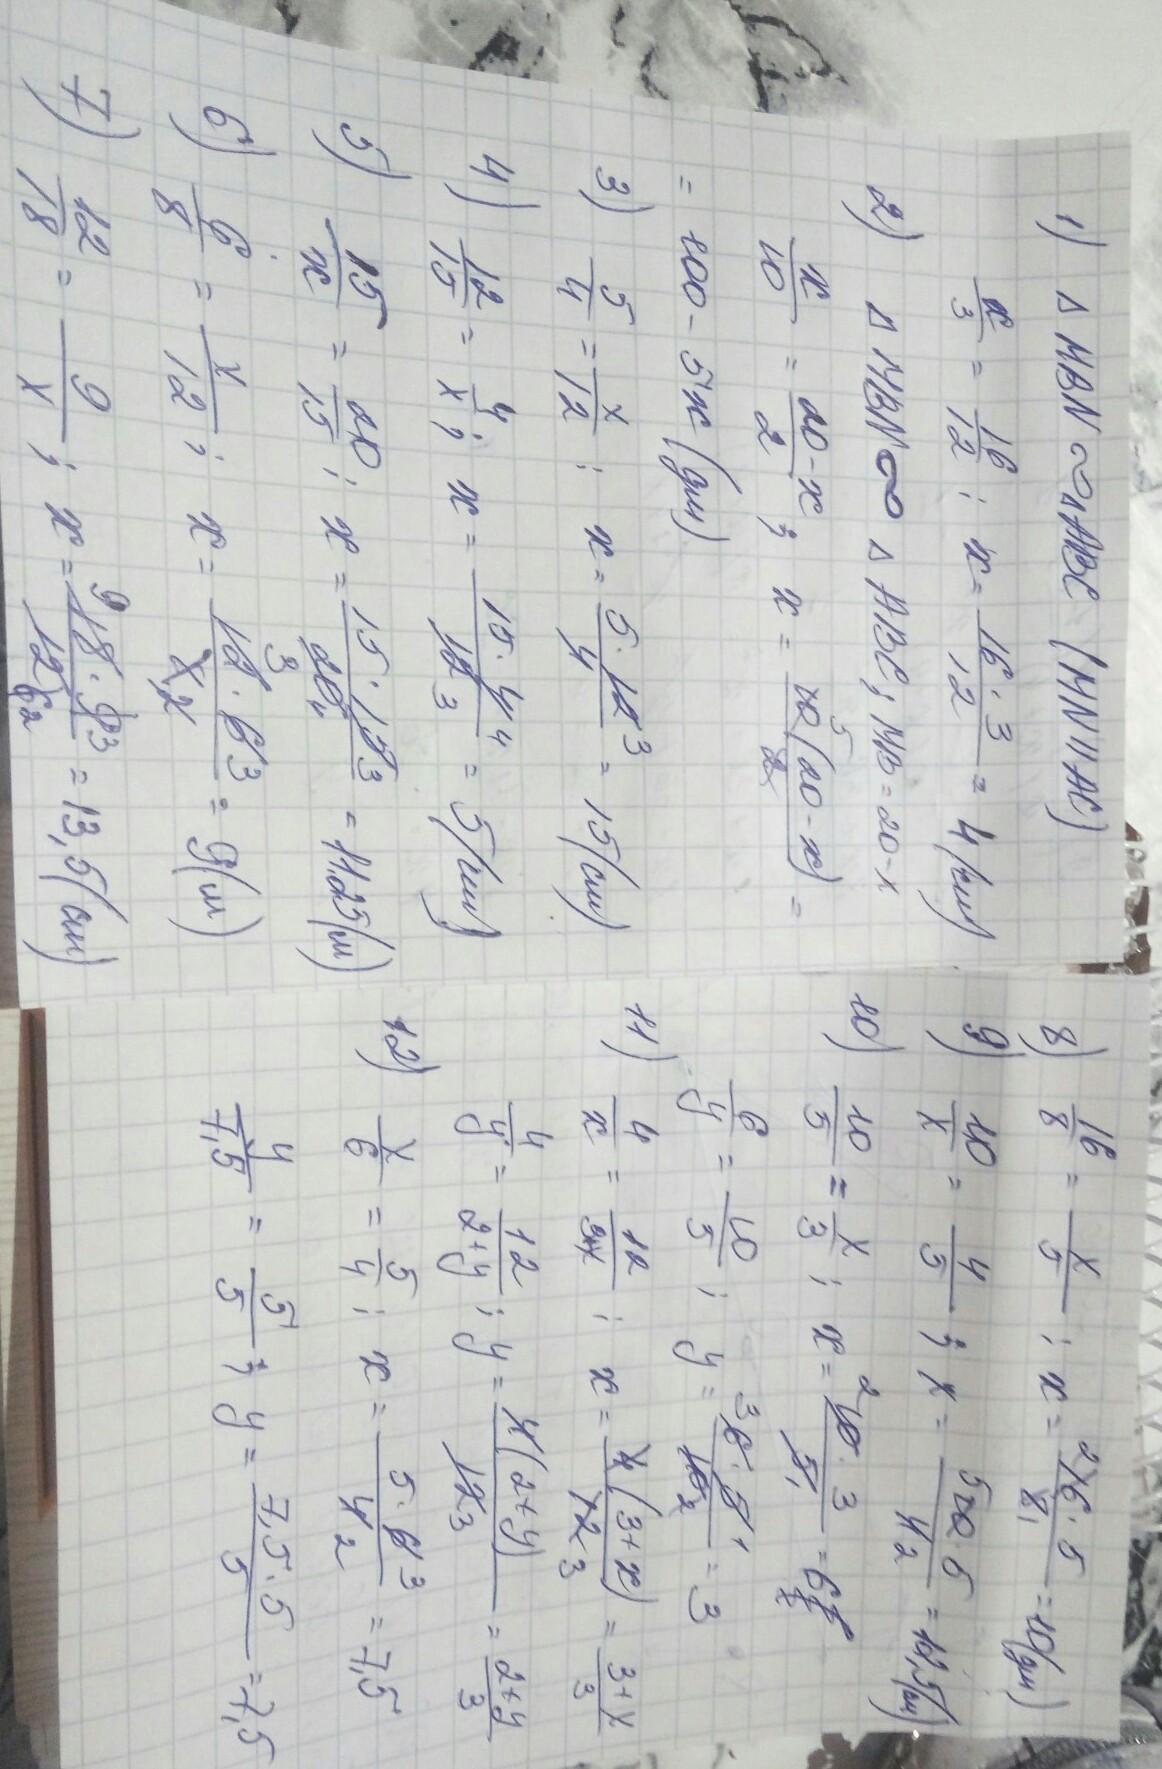 1) △ MBN ∾ △ABC (MN || AC)
x/3 = 16/12 ; x = 16·3/12 = 4 (см)
2) △ MBN ∾ △ ABC ; MB = 20-x
x/10 = 20-x/2 ; x = 10(20-x)/2 =
= 100 - 5x (дм)
3) 5/4 = x/12 ; x = 5·12/4 = 15 (см)
4) 12/15 = 4/x ; x = 15·4/12 = 5 (см)
5) 15/x = 20/15 ; x = 15·15/20 = 11,25 (м)
6) 6/8 = x/12 ; x = 12·6/8 = 9 (м)
7) 12/18 = 9/x ; x = 18·9/12 = 13,5 (см)
8) 16/8 = x/5 ; x = 16·5/8 = 10 (дм)
9) 10/x = 4/5 ; x = 10·5/4 = 12,5 (м)
10) 10/5 = x/3 ; x = 10·3/5 = 6
6/y = 10/5 ; y = 6·5/10 = 3
11) 4/x = 12/3+x ; x = 4(3+x)/12 = 3+x/3
4/y = 12/2+y ; y = 4(2+y)/12 = 2+y/3
12) x/6 = 5/4 ; x = 5·6/4 = 7,5
y/7,5 = 5/5 ; y = 7,5·5/5 = 7,5